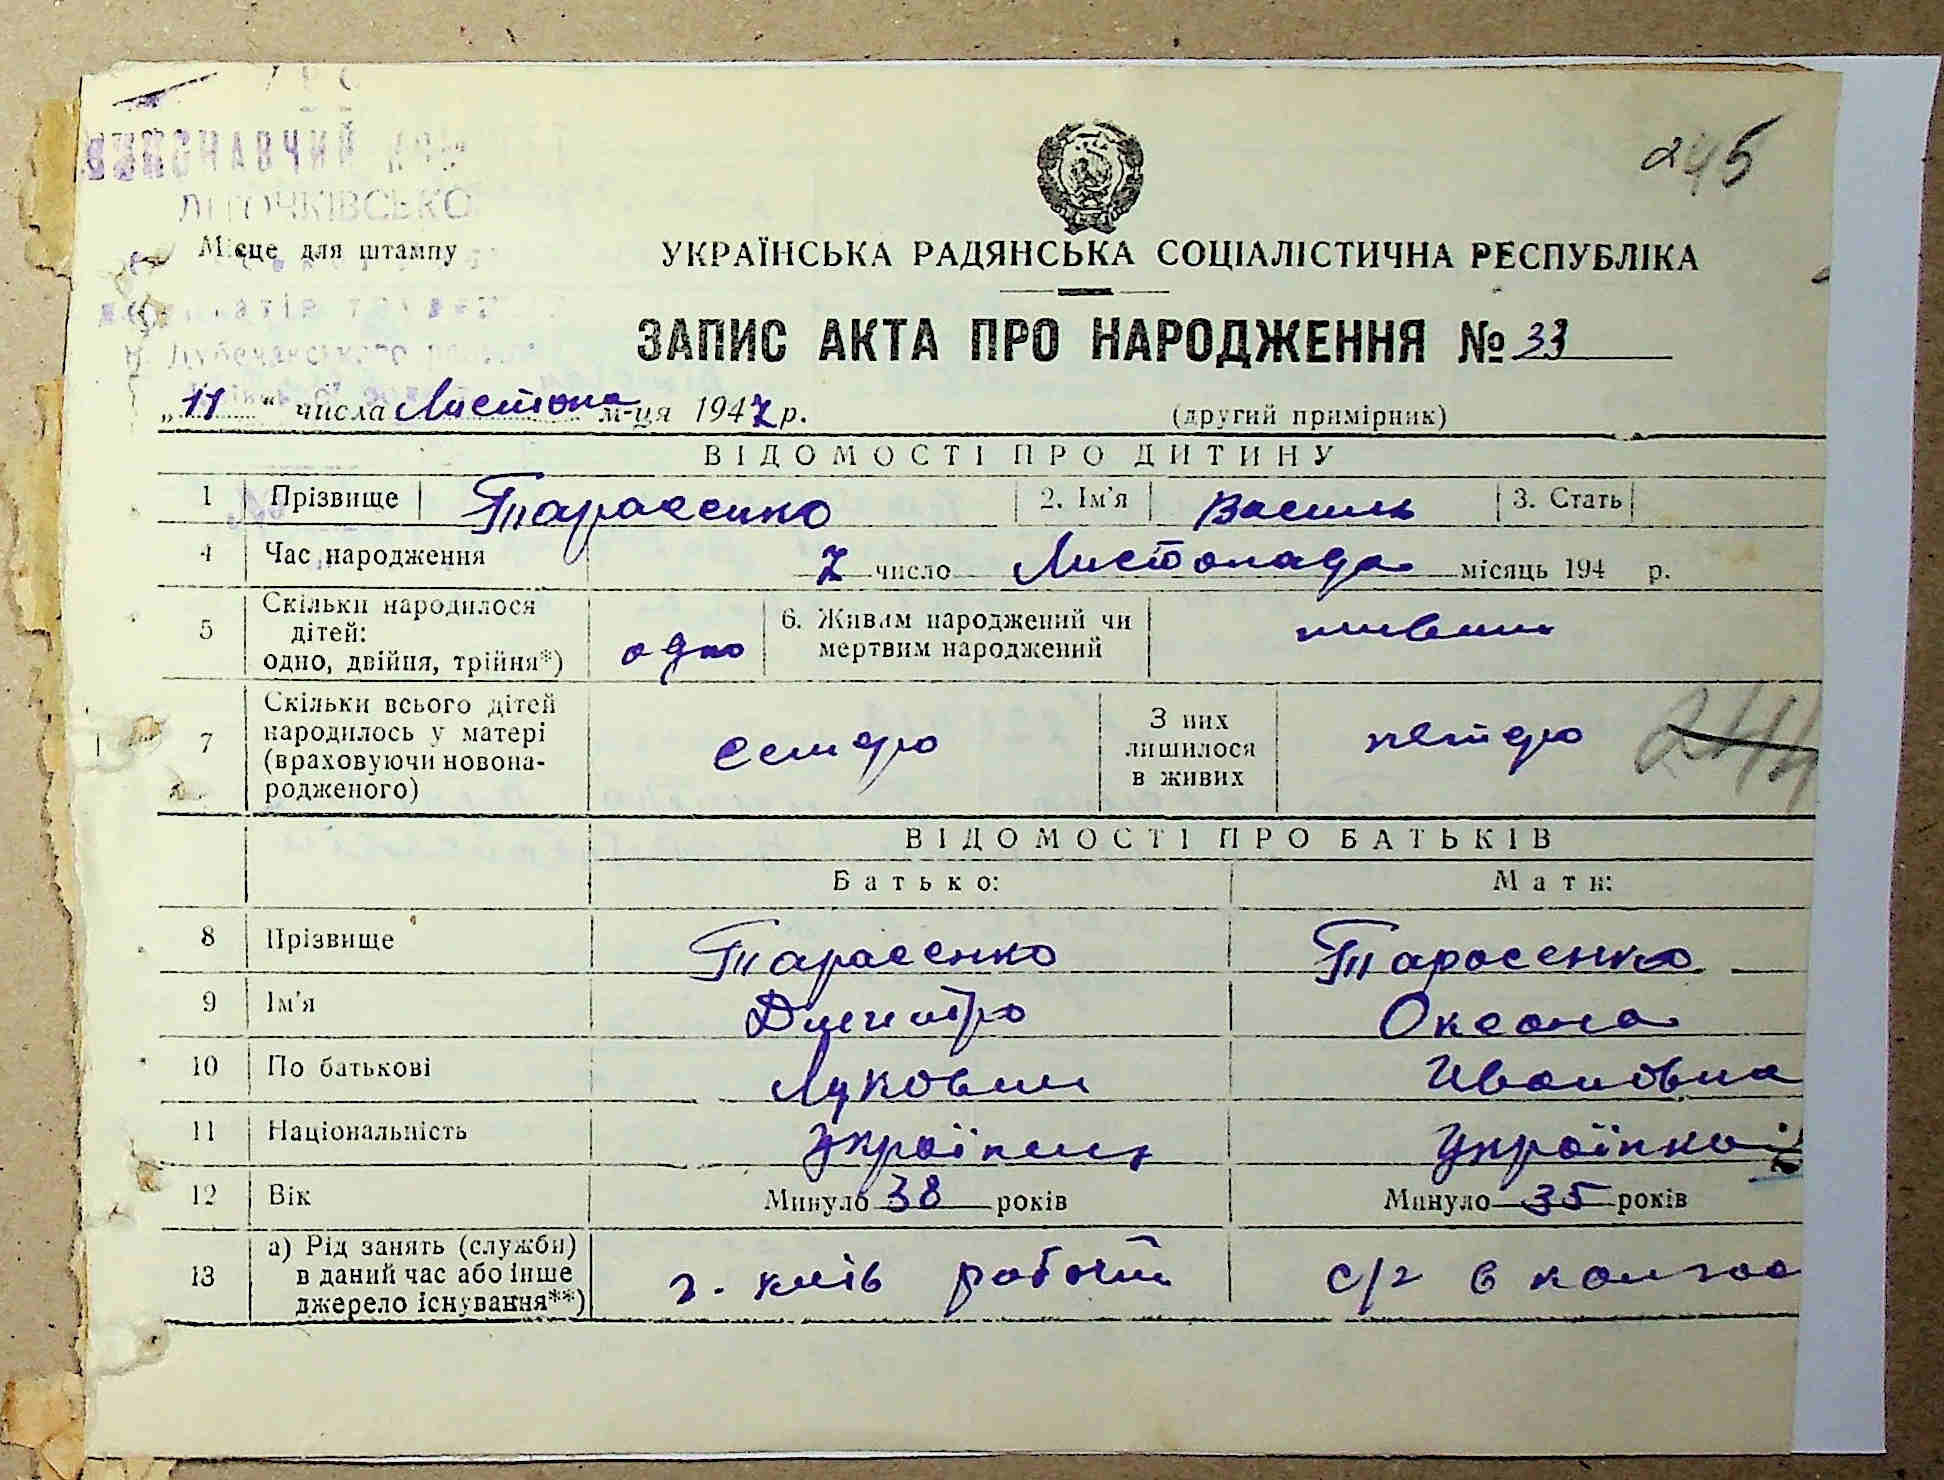 245
ЛІТОЧКІВСЬКО
Місце для штампу
УКРАЇНСЬКА РАДЯНСЬКА СОЦІАЛІСТИЧНА РЕСПУБЛІКА
ЗАПИС АКТА ПРО НАРОДЖЕННЯ № 33
„11“ числа Листопа м-ця 1947 р. (другий примірник)
ВІДОМОСТІ ПРО ДИТИНУ
1 Прізвище Тарасенко 2. Ім'я Василь 3. Стать
4 Час народження 7 число Листопада місяць 194 р.
5 Скільки народилося
дітей:
одно, двійня, трійня*) одно
6. Живим народжений чи
мертвим народжений живим
7 Скільки всього дітей
народилось у матері
(враховуючи новона-
родженого) семеро
З них
лишилося
в живих петеро
244
ВІДОМОСТІ ПРО БАТЬКІВ
Батько: Мати:
8 Прізвище Тарасенко Тарасенко
9 Ім'я Дмитро Оксана
10 По батькові Лукович Ивановна
11 Національність Українець Українка
12 Вік Минуло 38 років Минуло 35 років
13 а) Рід занять (служби)
в даний час або інше
джерело існування**) г. київ робочий с/г в колгос